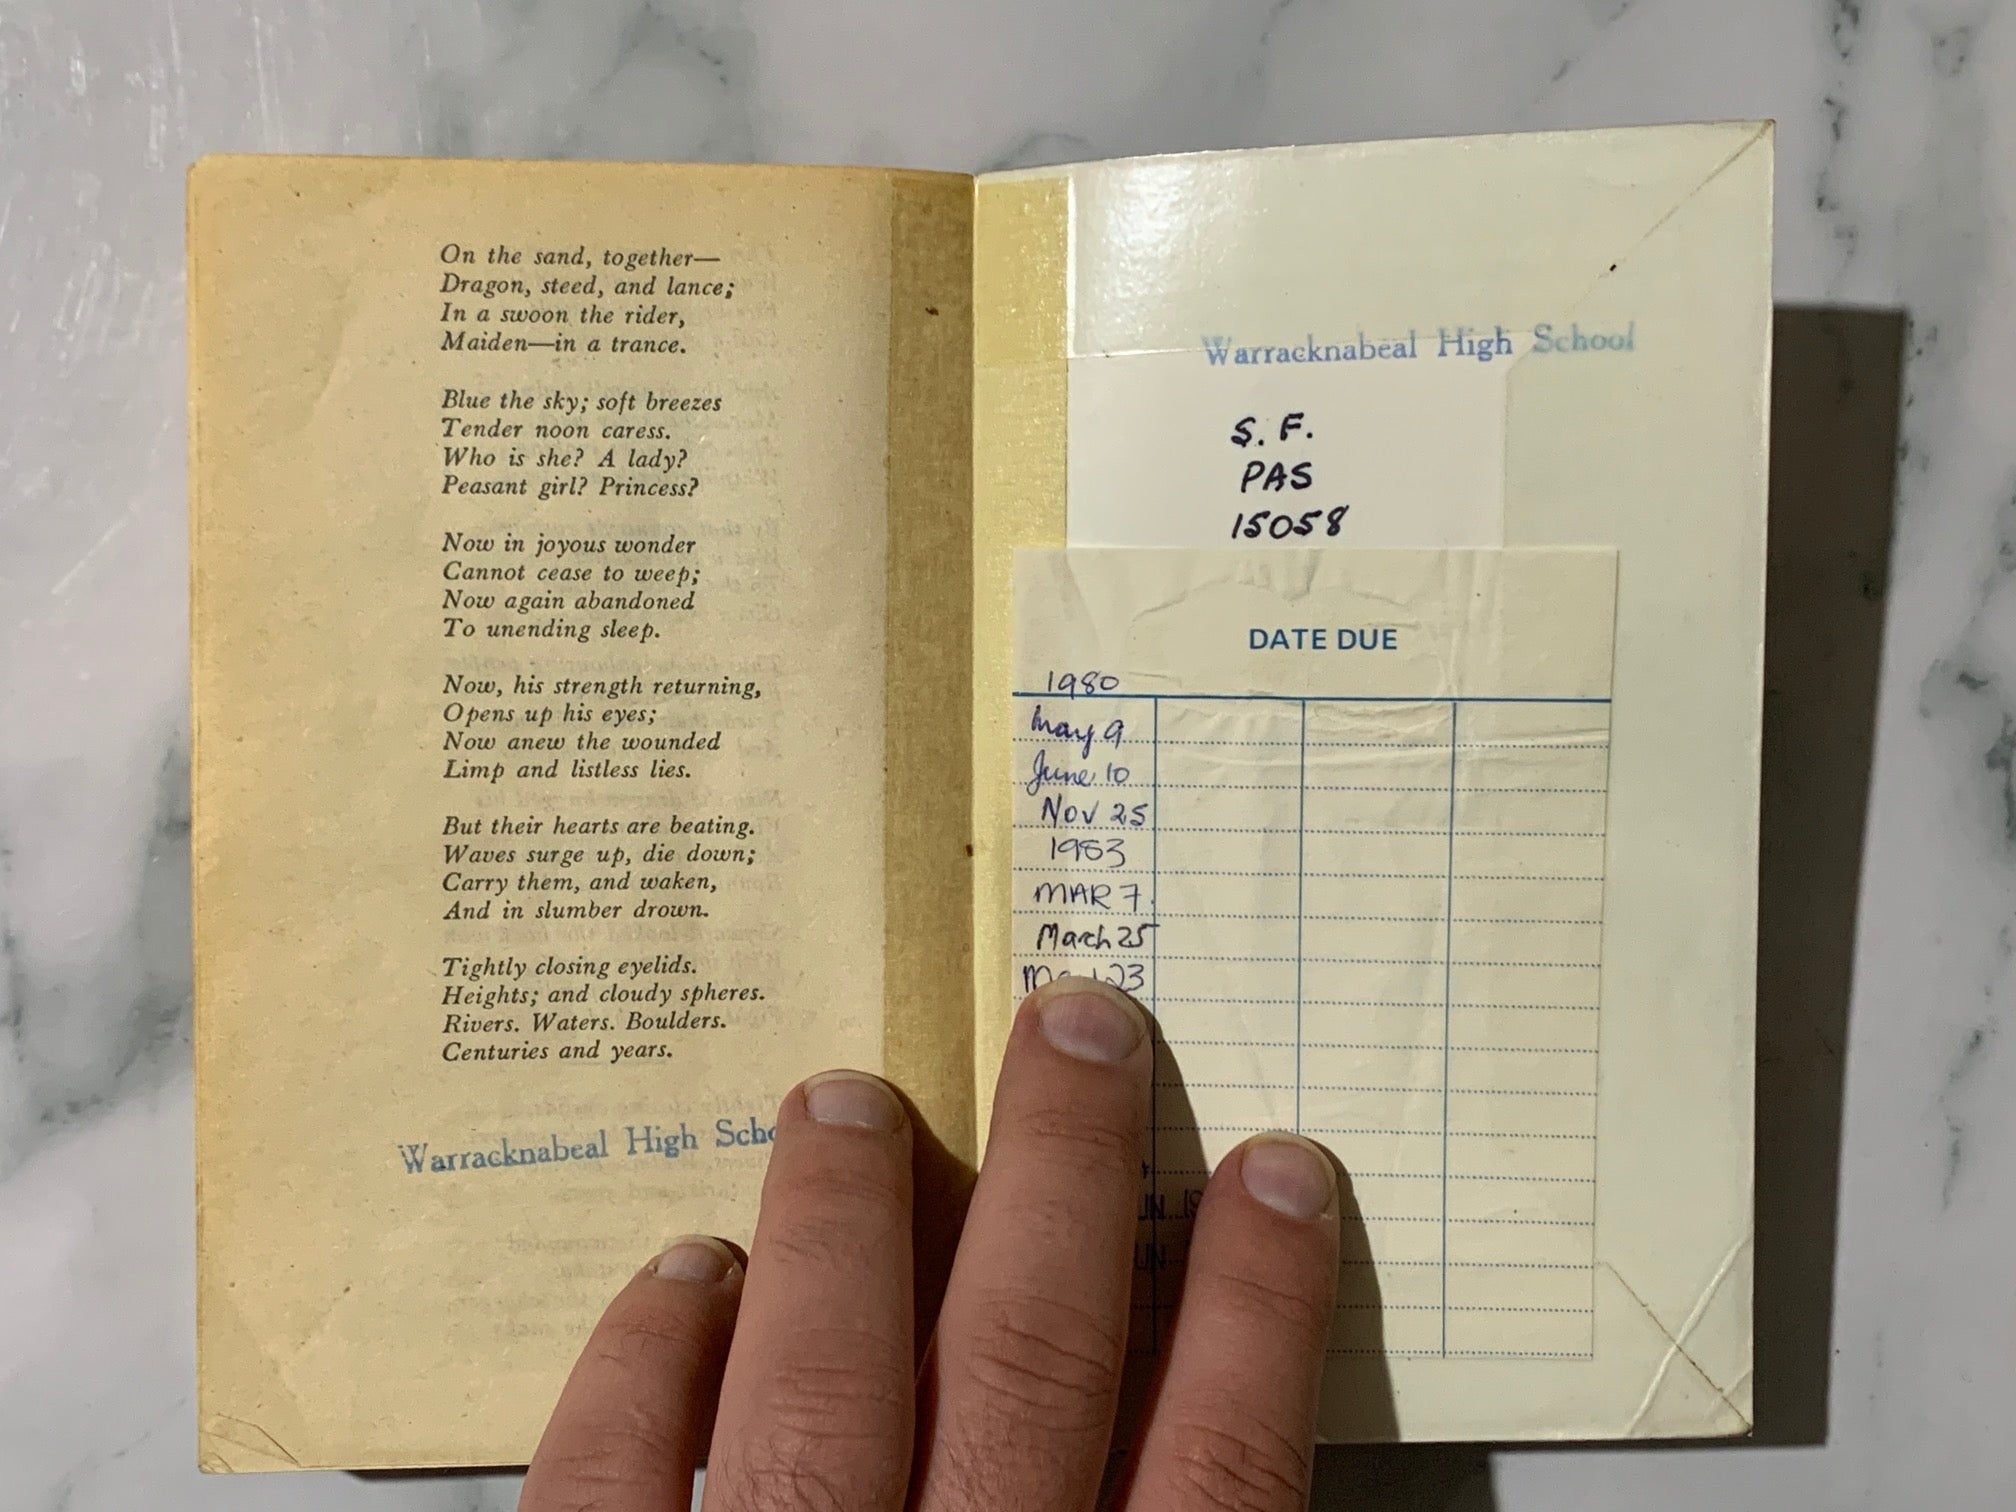 On the sand, together—
Dragon, steed, and lance;
In a swoon the rider,
Maiden—in a trance.
Blue the sky; soft breezes
Tender noon caress.
Who is she? A lady?
Peasant girl? Princess?
Now in joyous wonder
Cannot cease to weep;
Now again abandoned
To unending sleep.
Now, his strength returning,
Opens up his eyes;
Now anew the wounded
Limp and listless lies.
But their hearts are beating.
Waves surge up, die down;
Carry them, and waken,
And in slumber drown.
Tightly closing eyelids.
Heights; and cloudy spheres.
Rivers. Waters. Boulders.
Centuries and years.
Warracknabeal High Scho
Warracknabeal High School
S. F.
PAS
15058
DATE DUE
1980
May 9
June 10
Nov 25
1983
MAR 7.
March 25
23